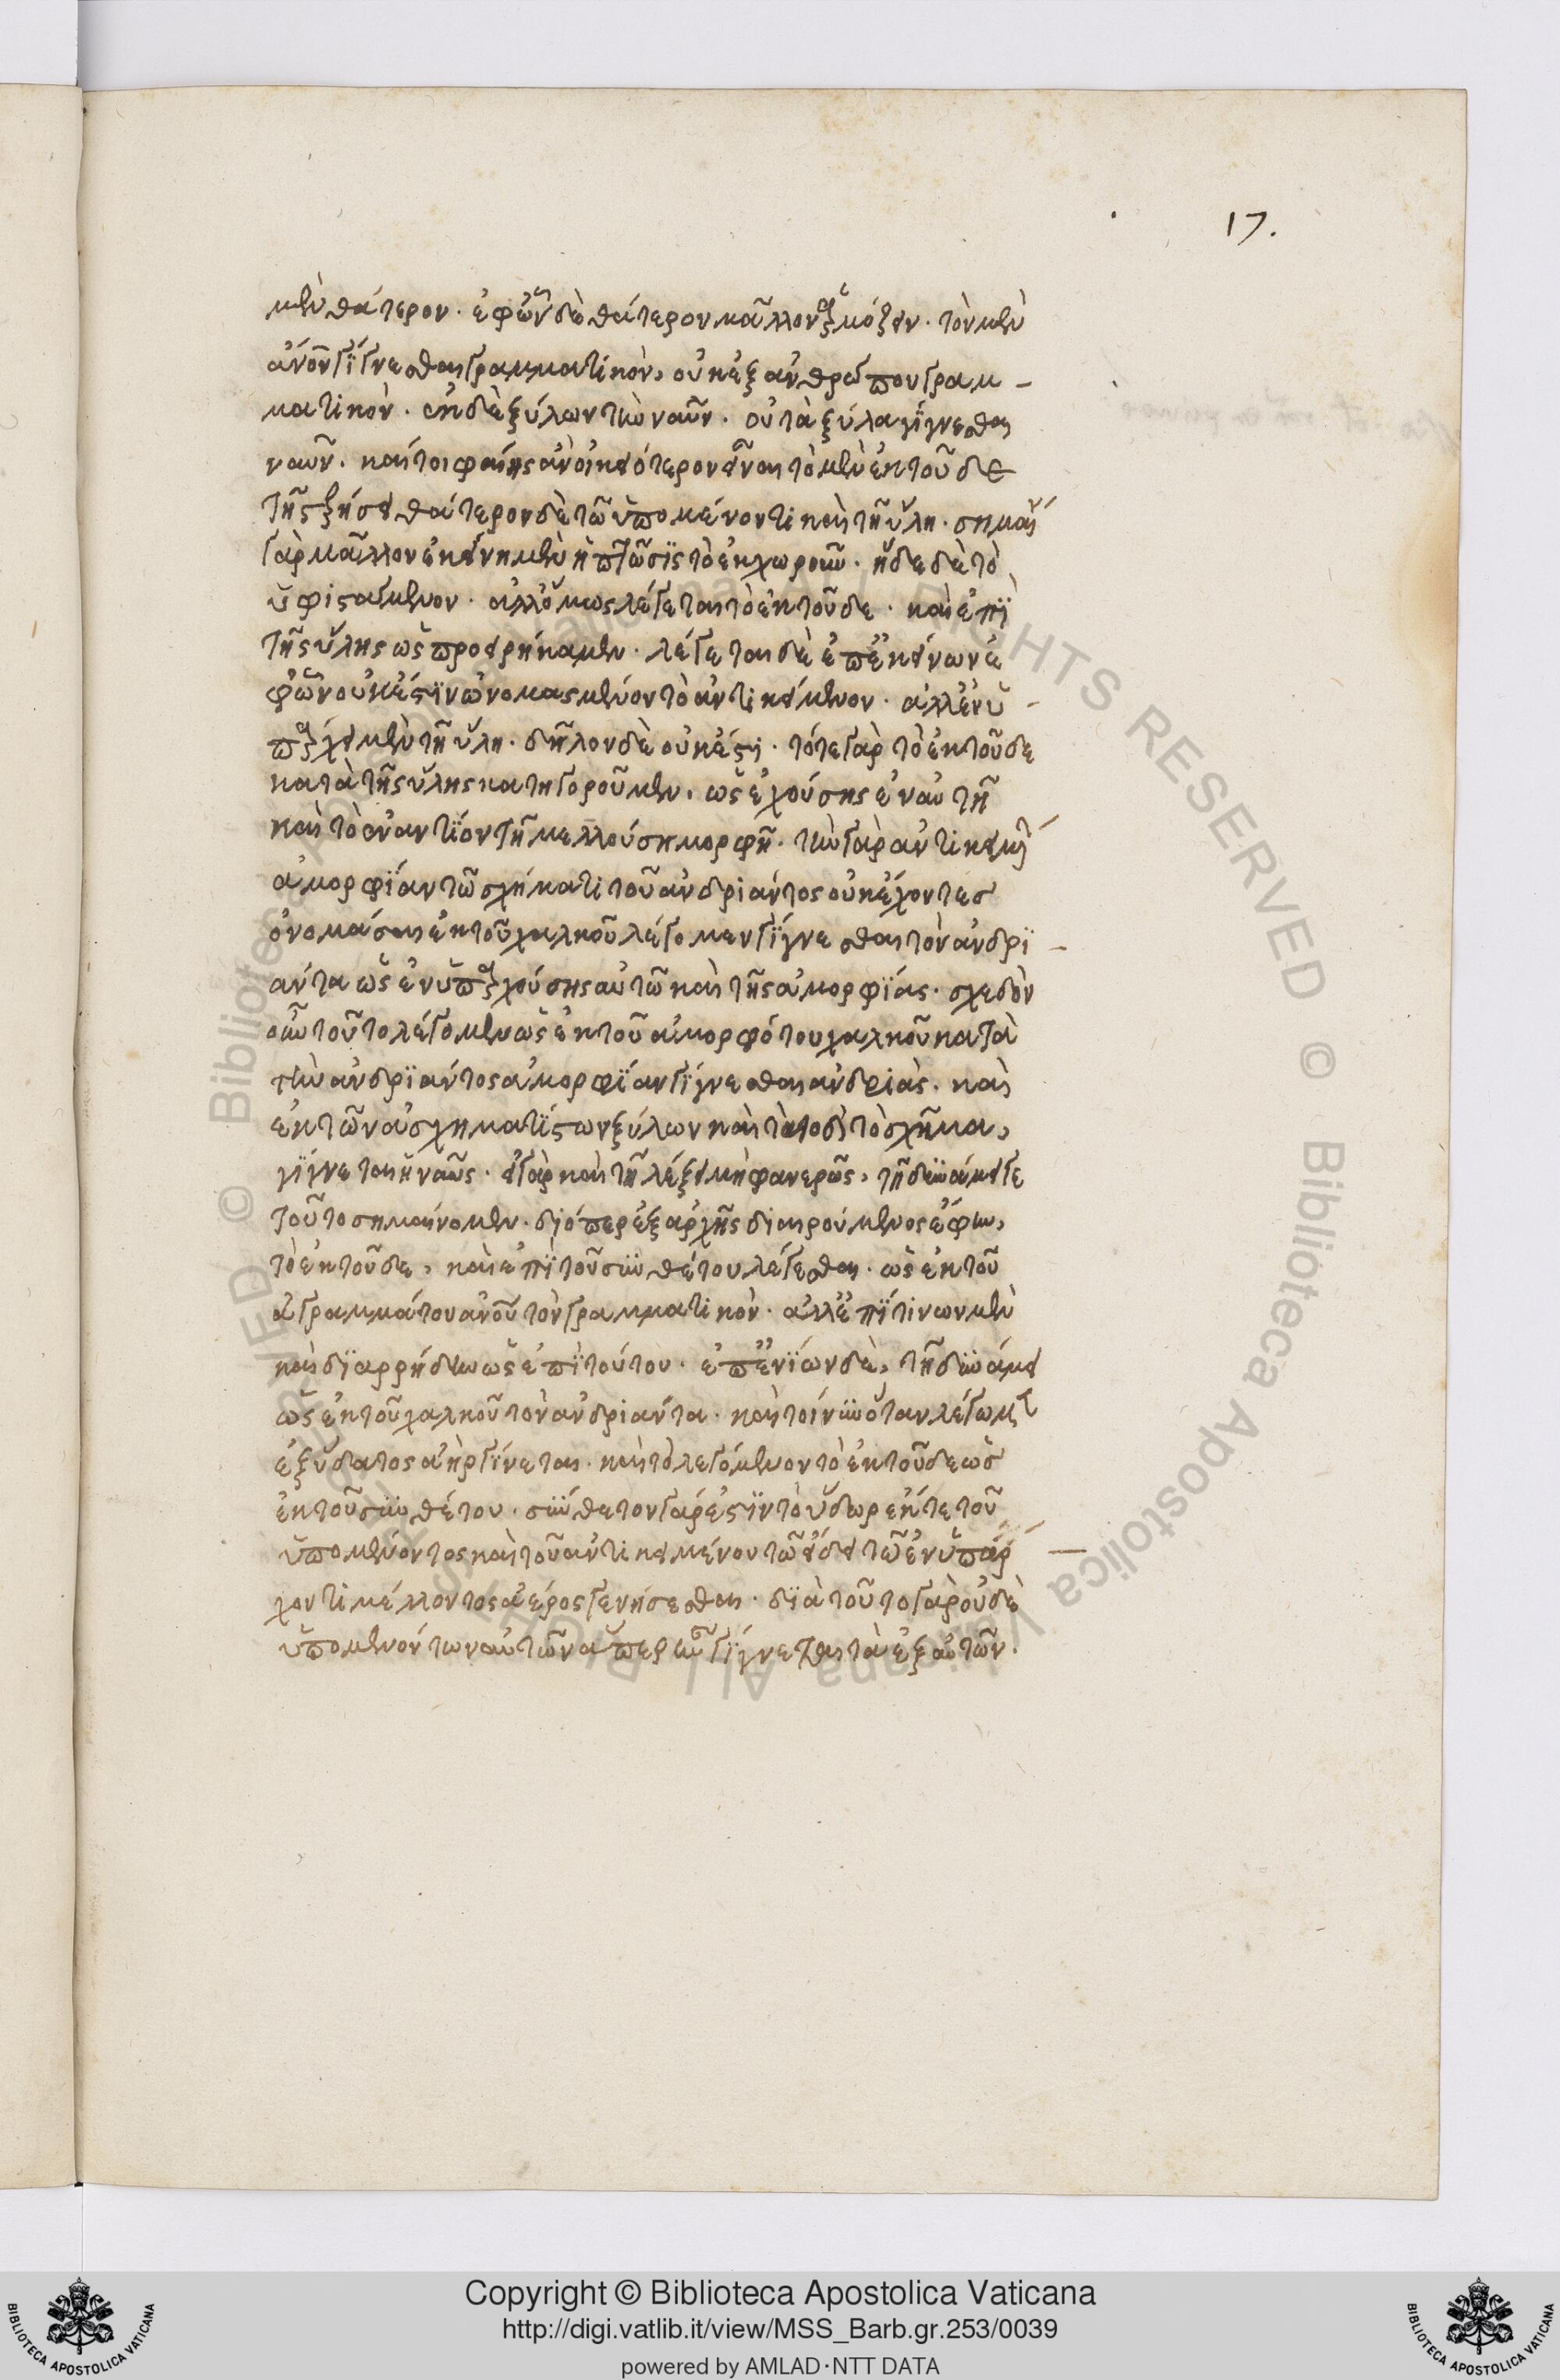 17.
μὲν θάτερον. ἐφ' ὧν δὲ θάτερον μᾶλλον ἁρμόζειν. τὸν μὲν
ἄνον γίγνεσθαι γραμματικὸν, οὐκ ἐξ ἀνθρώπου γραμ-
ματικὸν. ἐκ δὲ ξύλων τὴν ναῦν. οὐ τὰ ξύλα γίγνεσθαι
ναῦν. καίτοι φαίης ἂν οἰκειότερον εἶναι τὸ μὲν ἐκ τοῦδε
τῆ στερήσει θάτερον δὲ τῶ ὑπομένοντι καὶ τῆ ὕλη. σημαί
γὰρ μᾶλλον ἐκείνη μὲν ἡ πτῶσις τὸ ἐκχωροῦν. ἥδε δὲ τὸ
ὑφιστάμενον. ἀλλ' ὅμως λέγεται τὸ ἐκ τοῦδε. καὶ ἐπὶ
τῆς ὕλης ὡς προειρήκαμεν. λέγεται δὲ ἐπ' ἐκείνων ἐ
φ' ὧν οὐκ ἔστιν ὠνομασμένον τὸ ἀντικείμενον. ἀλλ' ἐνυ-
πάρχει μὲν τῆ ὕλη. δῆλον δὲ οὐκ ἔστι. τότε γὰρ τὸ ἐκ τοῦδε
κατὰ τῆς ὕλης κατηγοροῦμεν. ὡς ἐχούσης ἐν αὐτῆ
καὶ τὸ ἐναντίον τῆ μελλούση μορφῆ. τὴν γὰρ ἀντικειμ
ἀμορφίαν τῶ σχήματι τοῦ ἀνδριάντος οὐκ ἔχοντες
ὀνομάσαι ἐκ τοῦ χαλκοῦ λέγομεν γίγνεσθαι τὸν ἀνδρι-
άντα ὡς ἐνυπαρχούσης αὐτῶ καὶ τῆς ἀμορφίας. σχεδὸν
οὖν τοῦτο λέγομεν ὡς ἐκ τοῦ ἀμόρφου χαλκοῦ κατὰ
τὴν ἀνδριάντος ἀμορφίαν γίγνεσθαι ἀνδριάς. καὶ
ἐκ τῶν ἀσχηματίστων ξύλων κατὰ τοδὶ τὸ σχῆμα,
γίγνεται ἡ ναῦς. εἰ γὰρ καὶ τῆ λέξει μὴ φανερῶς, τῆ δυνάμει γε
τοῦτο σημαίνομεν. διόπερ ἐξ ἀρχῆς διαιρούμενος ἔφην,
τὸ ἐκ τοῦδε, καὶ ἐπὶ τοῦ συνθέτου λέγεσθαι. ὡς ἐκ τοῦ
ἀγραμμάτου ἀνοῦ τὸν γραμματικὸν. ἀλλ' ἐπί τινων μὲν
καὶ διαρρήδην ὡς ἐπὶ τούτου. ἐπ' ἐνίων δὲ, τῆ δυνάμει
ὡς ἐκ τοῦ χαλκοῦ τὸν ἀνδριάντα. καὶ τοίνυν ὅταν λέγωμ
ἐξ ὕδατος ἀὴρ γίνεται. καὶ τὸ λεγόμενον τὸ ἐκ τοῦδε ὡς
ἐκ τοῦ συνθέτου. σύνθετον γάρ ἐστιν τὸ ὕδωρ ἔκ τε τοῦ
ὑπομένοντος καὶ τοῦ ἀντικειμένου τῶ εἴδει τῶ ἐνυπάρ
χοντι μέλλοντος ἀέρος γενήσεσθαι. διὰ τοῦτο γὰρ οὐδὲ
ὑπομενόντων αὐτῶν ἅπερ ἦν γίγνεται τὰ ἐξ αὐτῶν.
Copyright © Biblioteca Apostolica Vaticana
http://digi.vatlib.it/view/MSS_Barb.gr.253/0039
powered by AMLAD·NTT DATA